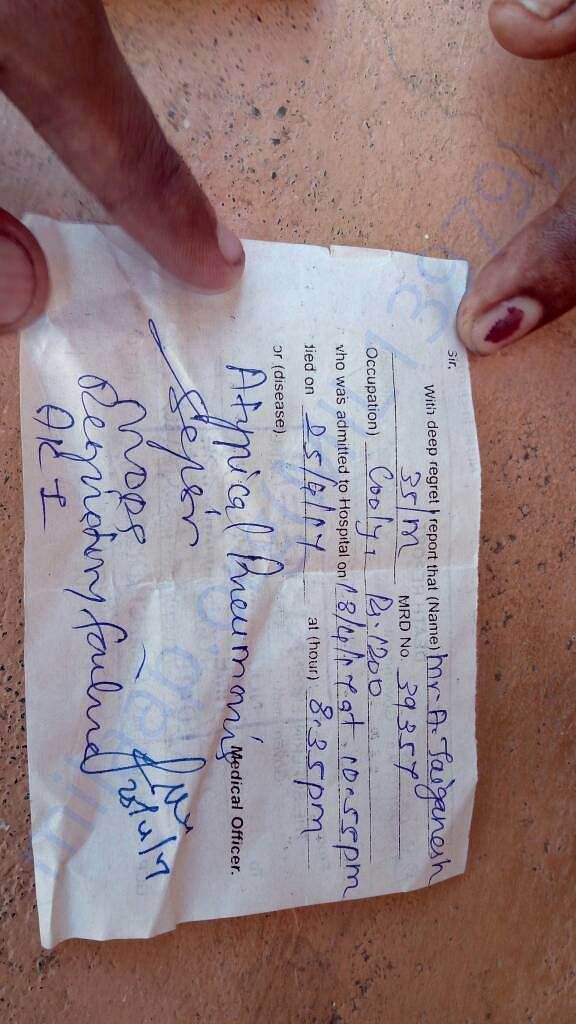 Sir,
With deep regret I report that (Name) Mr. A. Jaiganesh
35/M MRD No. 39357
Occupation) Cooly, Rs. 1200
who was admitted to Hospital on 18/4/17 at 10.55pm
died on 25/4/17 at (hour) 8.35pm
or (disease).
Medical Officer.
Atypical Pneumonia
Sepsis
MODS
Respiratory failure
AKI